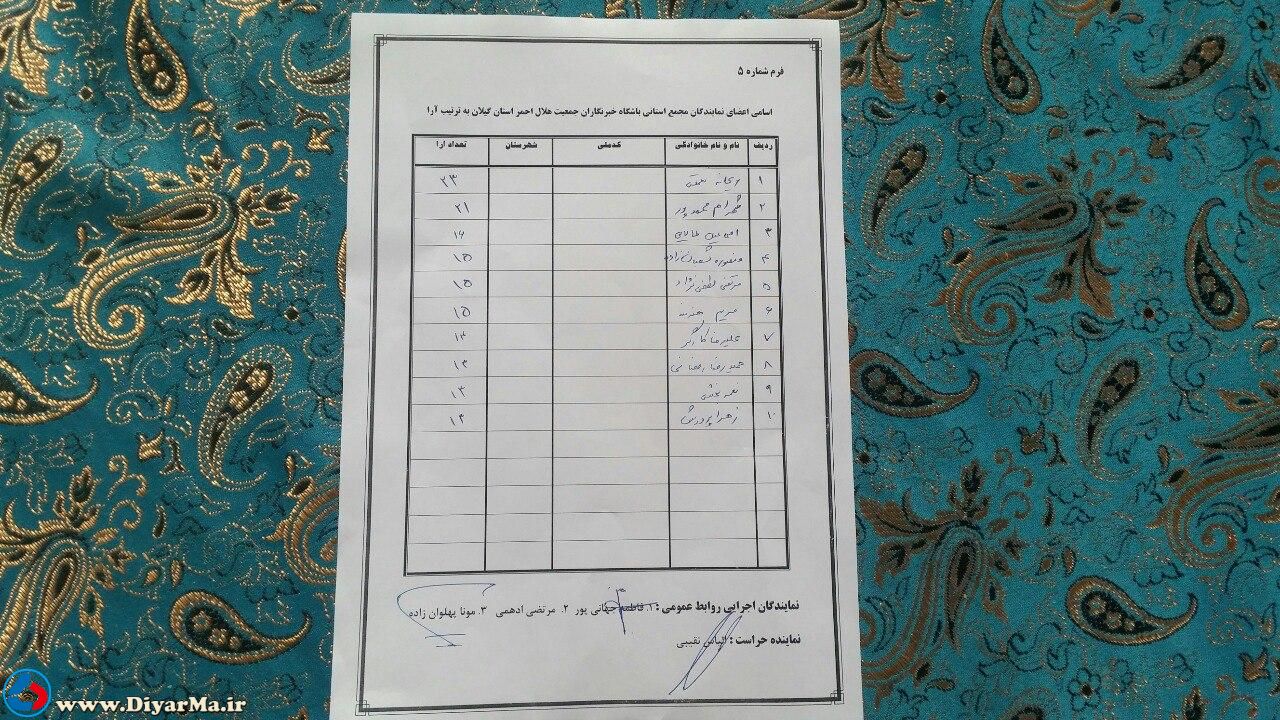 فرم شماره ۵
اسامی اعضای نمایندگان مجمع استانی باشگاه خبرنگاران جمعیت هلال احمر استان گیلان به ترتیب آرا
ردیف نام و نام خانوادگی کدملی شهرستان تعداد آرا
۱ ۲۳
۲ ۲۱
۳ ۱۶
۴ منصوره شعبان زاده ۱۵
۵ مرتضی لطفی نژاد ۱۵
۶ مریم ۱۵
۷ علیرضا کارگر ۱۳
۸ رمضانی ۱۳
۹ نعمه ۱۳
۱۰ زهرا پرورش ۱۲
نمایندگان اجرایی روابط عمومی : ۱. فاطمه جهانی پور ۲. مرتضی ادهمی ۳. مونا پهلوان زاده
نماینده حراست : الیاس نقیبی
www.DiyarMa.ir